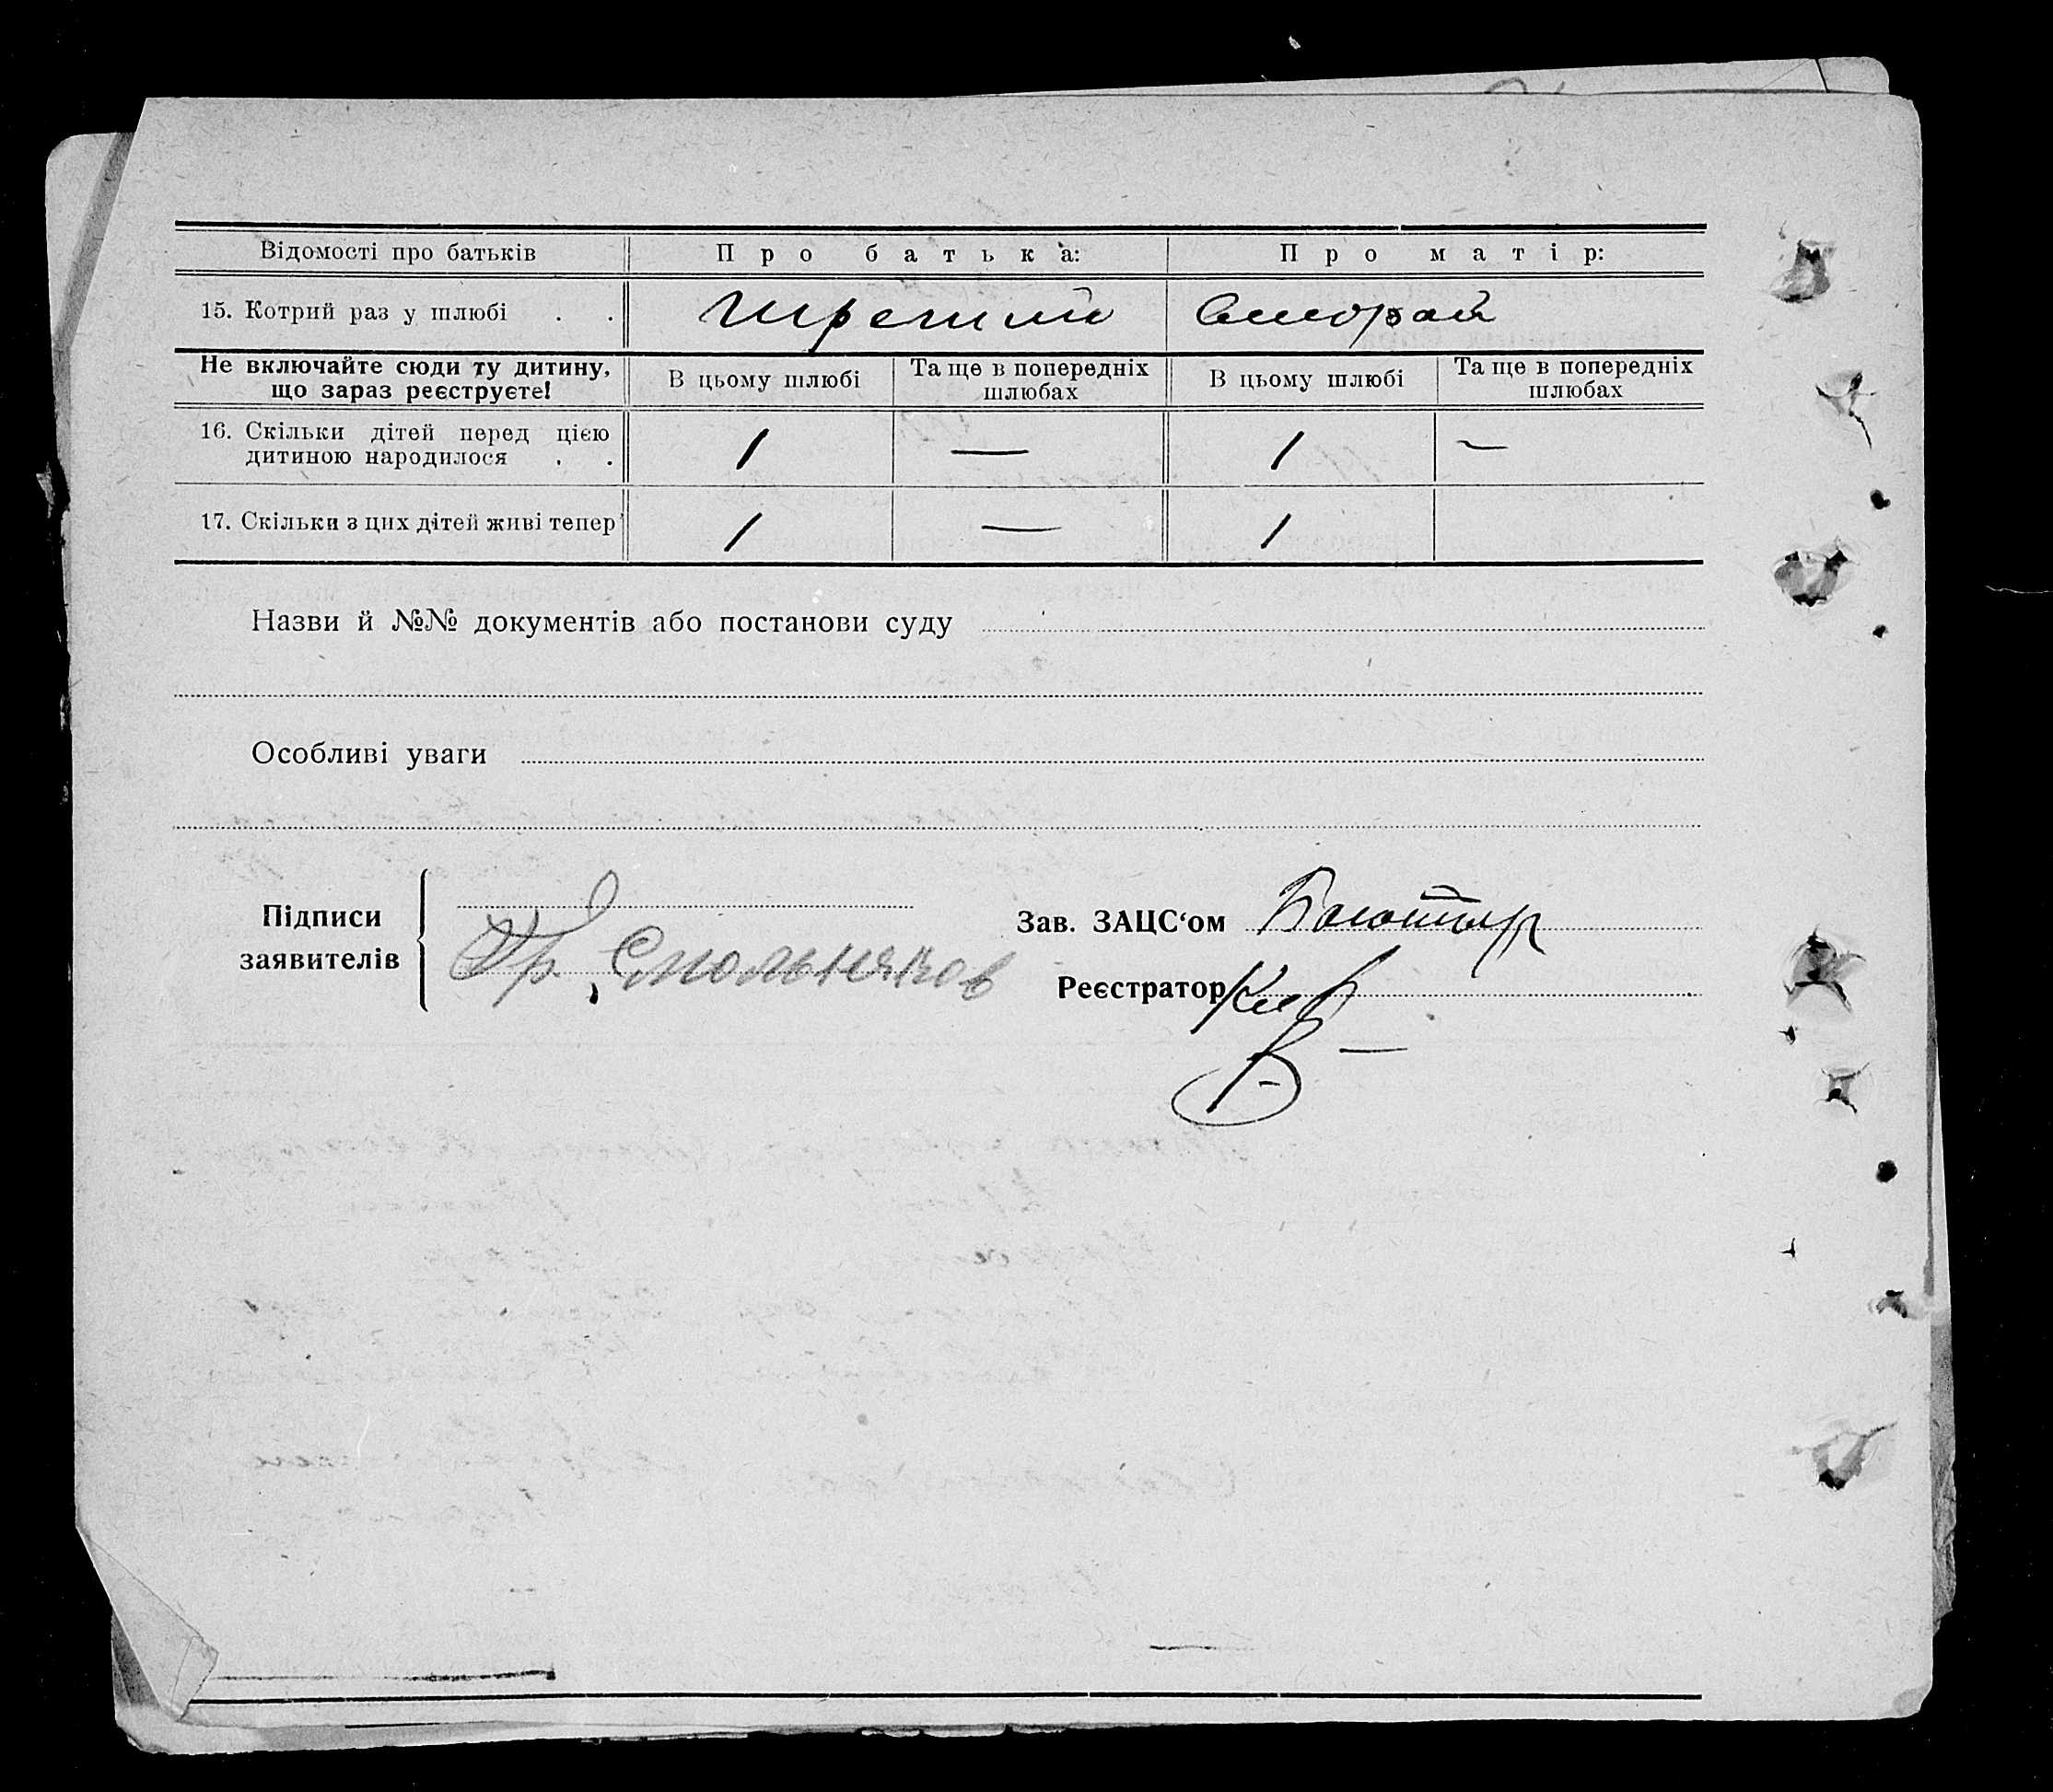 Відомості про батьків Про батька: Про матір:
15. Котрий раз у шлюбі . . третий второй
Не включайте сюди ту дитину, що зараз реєструєте! В цьому шлюбі Та ще в попередніх шлюбах В цьому шлюбі Та ще в попередніх шлюбах
16. Скільки дітей перед цією
дитиною народилося . . 1 — 1 —
17. Скільки з цих дітей живі тепер 1 — 1
Назви й №№ документів або постанови суду
Особливі уваги
Підписи
заявителів Гр. Смольняков
Зав. ЗАЦС‘ом
Реєстратор